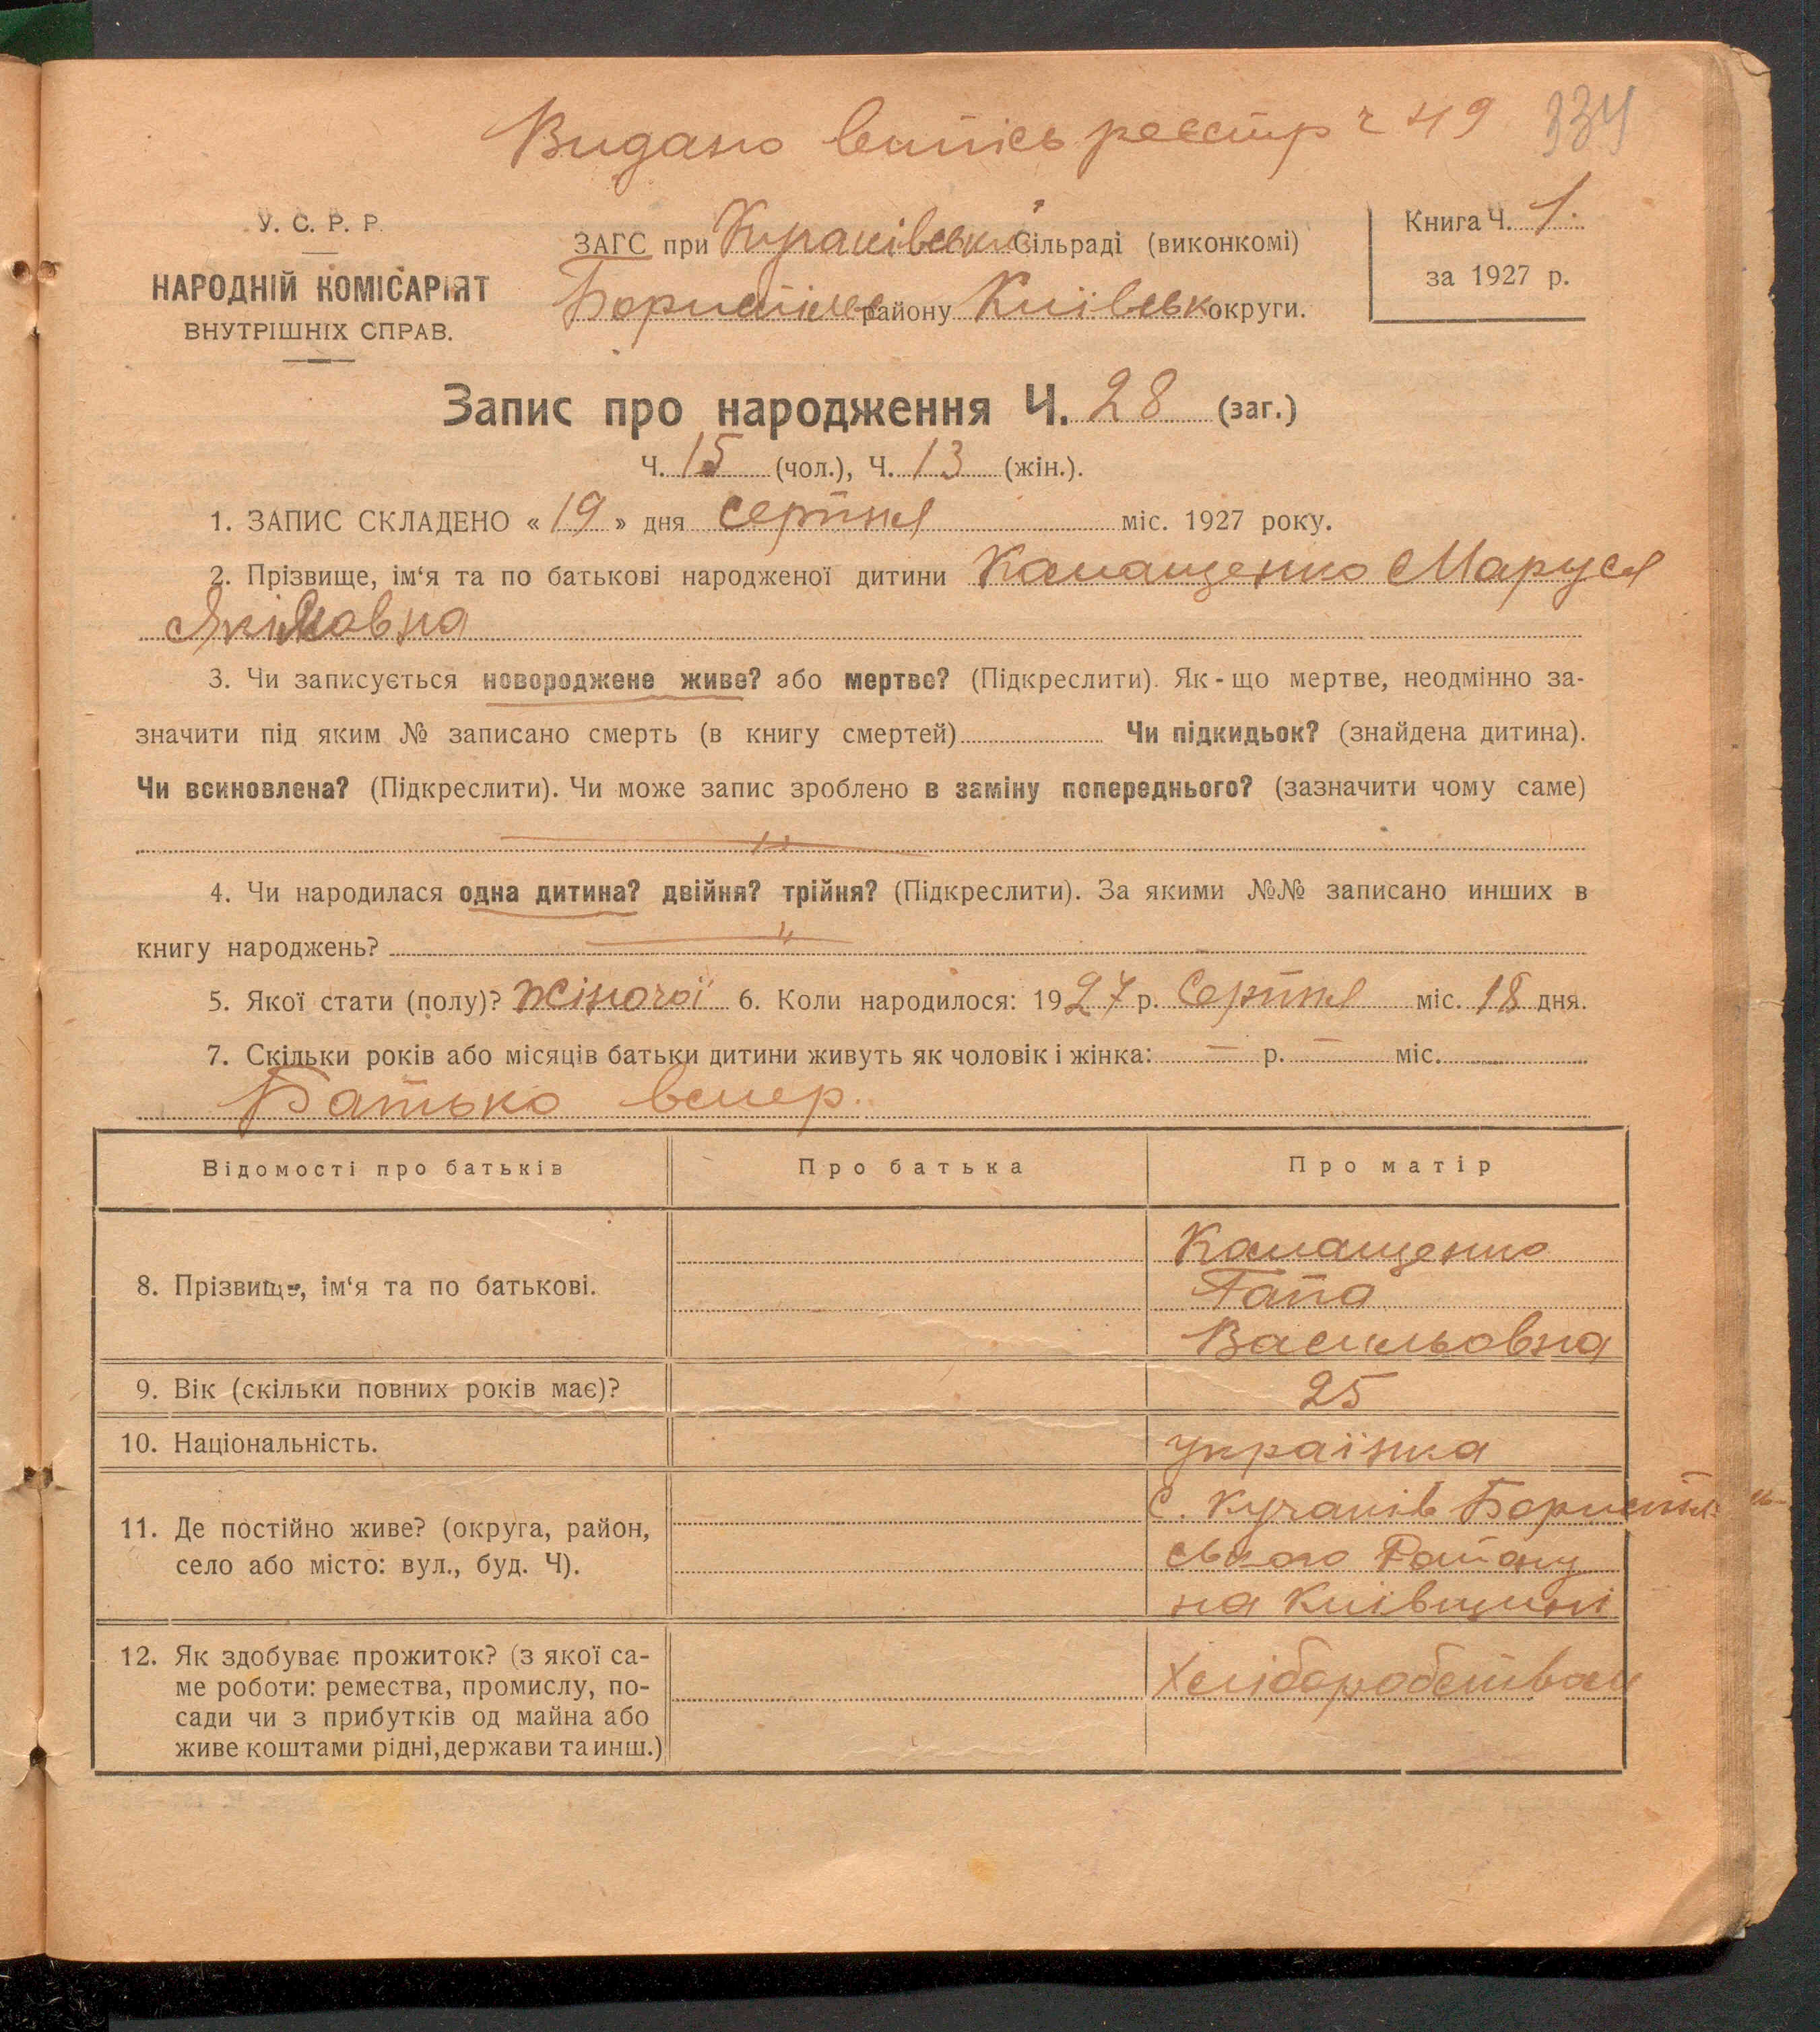 Видано витпісь реєстр ч 49 334
У. С. Р. Р.
НАРОДНІЙ КОМІСАРІЯТ
ВНУТРІШНІХ СПРАВ.
ЗАГС при Кучаківській Сільраді (виконкомі)
Бориспільс району Київськ округи.
Книга Ч. 1.
за 1927 р.
Запис про народження Ч. 28 (заг.)
Ч. 15 (чол.), Ч. 13 (жін.).
1. ЗАПИС СКЛАДЕНО « 19 » дня серпня міс. 1927 року.
2. Прізвище, ім‘я та по батькові народженої дитини Маруся
Якімовна
3. Чи записується новороджене живе? або мертве? (Підкреслити). Як-що мертве, неодмінно за-
значити під яким № записано смерть (в книгу смертей) Чи підкидьок? (знайдена дитина).
Чи всиновлена? (Підкреслити). Чи може запис зроблено в заміну попереднього? (зазначити чому саме)
4. Чи народилася одна дитина? двійня? трійня? (Підкреслити). За якими №№ записано инших в
книгу народжень?
5. Якої стати (полу)? жіночої 6. Коли народилося: 1927 р. Серпня міс. 18 дня.
7. Скільки років або місяців батьки дитини живуть як чоловік і жінка: — р. — міс.
Батько вмер.
Відомості про батьків Про батька Про матір
8. Прізвище, ім‘я та по батькові.
Васильовна
9. Вік (скільки повних років має)? 25
10. Національність. українка
11. Де постійно живе? (округа, район,
село або місто: вул., буд. Ч).
с. Кучаків Бориспіль-
ського Району
на Київщині
12. Як здобуває прожиток? (з якої са-
ме роботи: ремества, промислу, по-
сади чи з прибутків од майна або
живе коштами рідні, держави та инш.)
Хліборобством